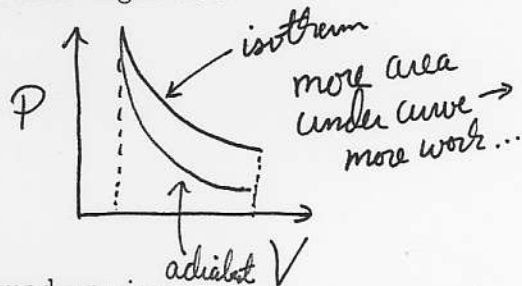 isotherm
P
more area
under curve →
more work...
adiabat V